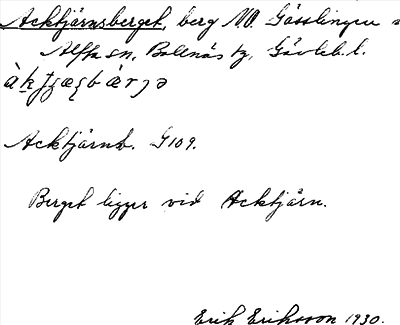 Acktjärnsberget, berg NV. Gösslingen
Alfta sn, Bollnäs tg, Gävleb. l.
Acktjärnb. G109.
Berget ligger vid Acktjärn.
Erik Eriksson 1930.